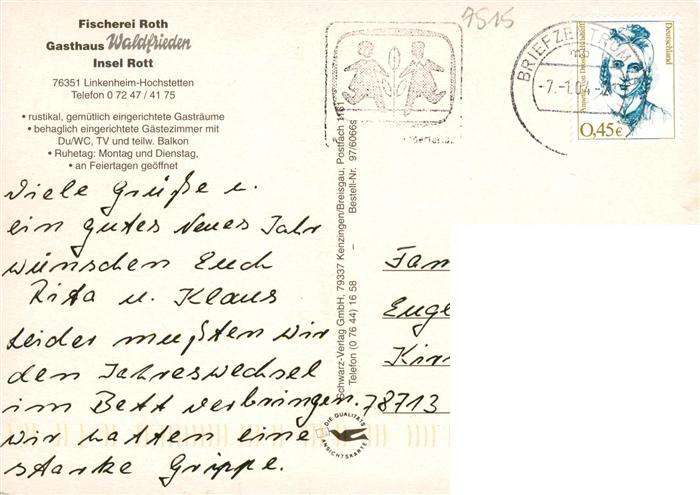 Fischerei Roth
Gasthaus Waldfrieden
Insel Rott
76351 Linkenheim-Hochstetten
Telefon 0 72 47 / 41 75
• rustikal, gemütlich eingerichtete Gasträume
• behaglich eingerichtete Gästezimmer mit
Du/WC, TV und teilw. Balkon
• Ruhetag: Montag und Dienstag,
• an Feiertagen geöffnet
Viele Grüße u.
ein gutes Neues Jahr
wünschen Euch
Rita u. Klaus
Leider mußten wir
den Jahreswechsel
im Bett verbringen.
Wir hatten eine
starke Grippe.
Schwarz-Verlag GmbH, 79337 Kenzingen/Breisgau, Postfach 1161
Telefon (0 76 44) 16 58 – Bestell-Nr. 97/6066s
DIE QUALITÄTS
ANSICHTSKARTE
7515
BRIEFZENTRUM
-7.-1.04-
Deutschland
0,45€
Fam
Euge
Kir
78713